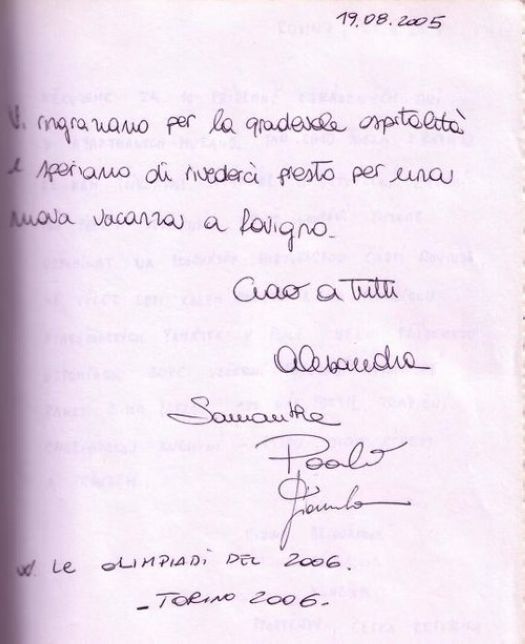 19.08.2005
Vi ringraziamo per la gradevole ospitalità
e speriamo di rivederci presto per una
nuova vacanza a Rovigno.
Ciao a tutti
Alessandra
Samantha
Paolo
W. LE OLIMPIADI DEL 2006.
- TORINO 2006 -